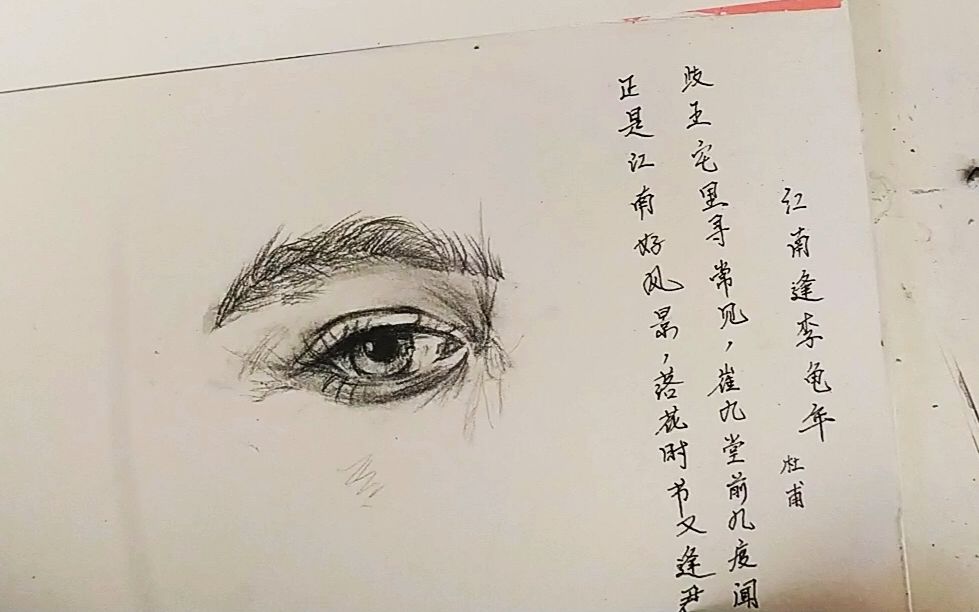 江南逢李龟年
杜甫
歧王宅里寻常见，崔九堂前九度闻
正是江南好风景，落花时节又逢君